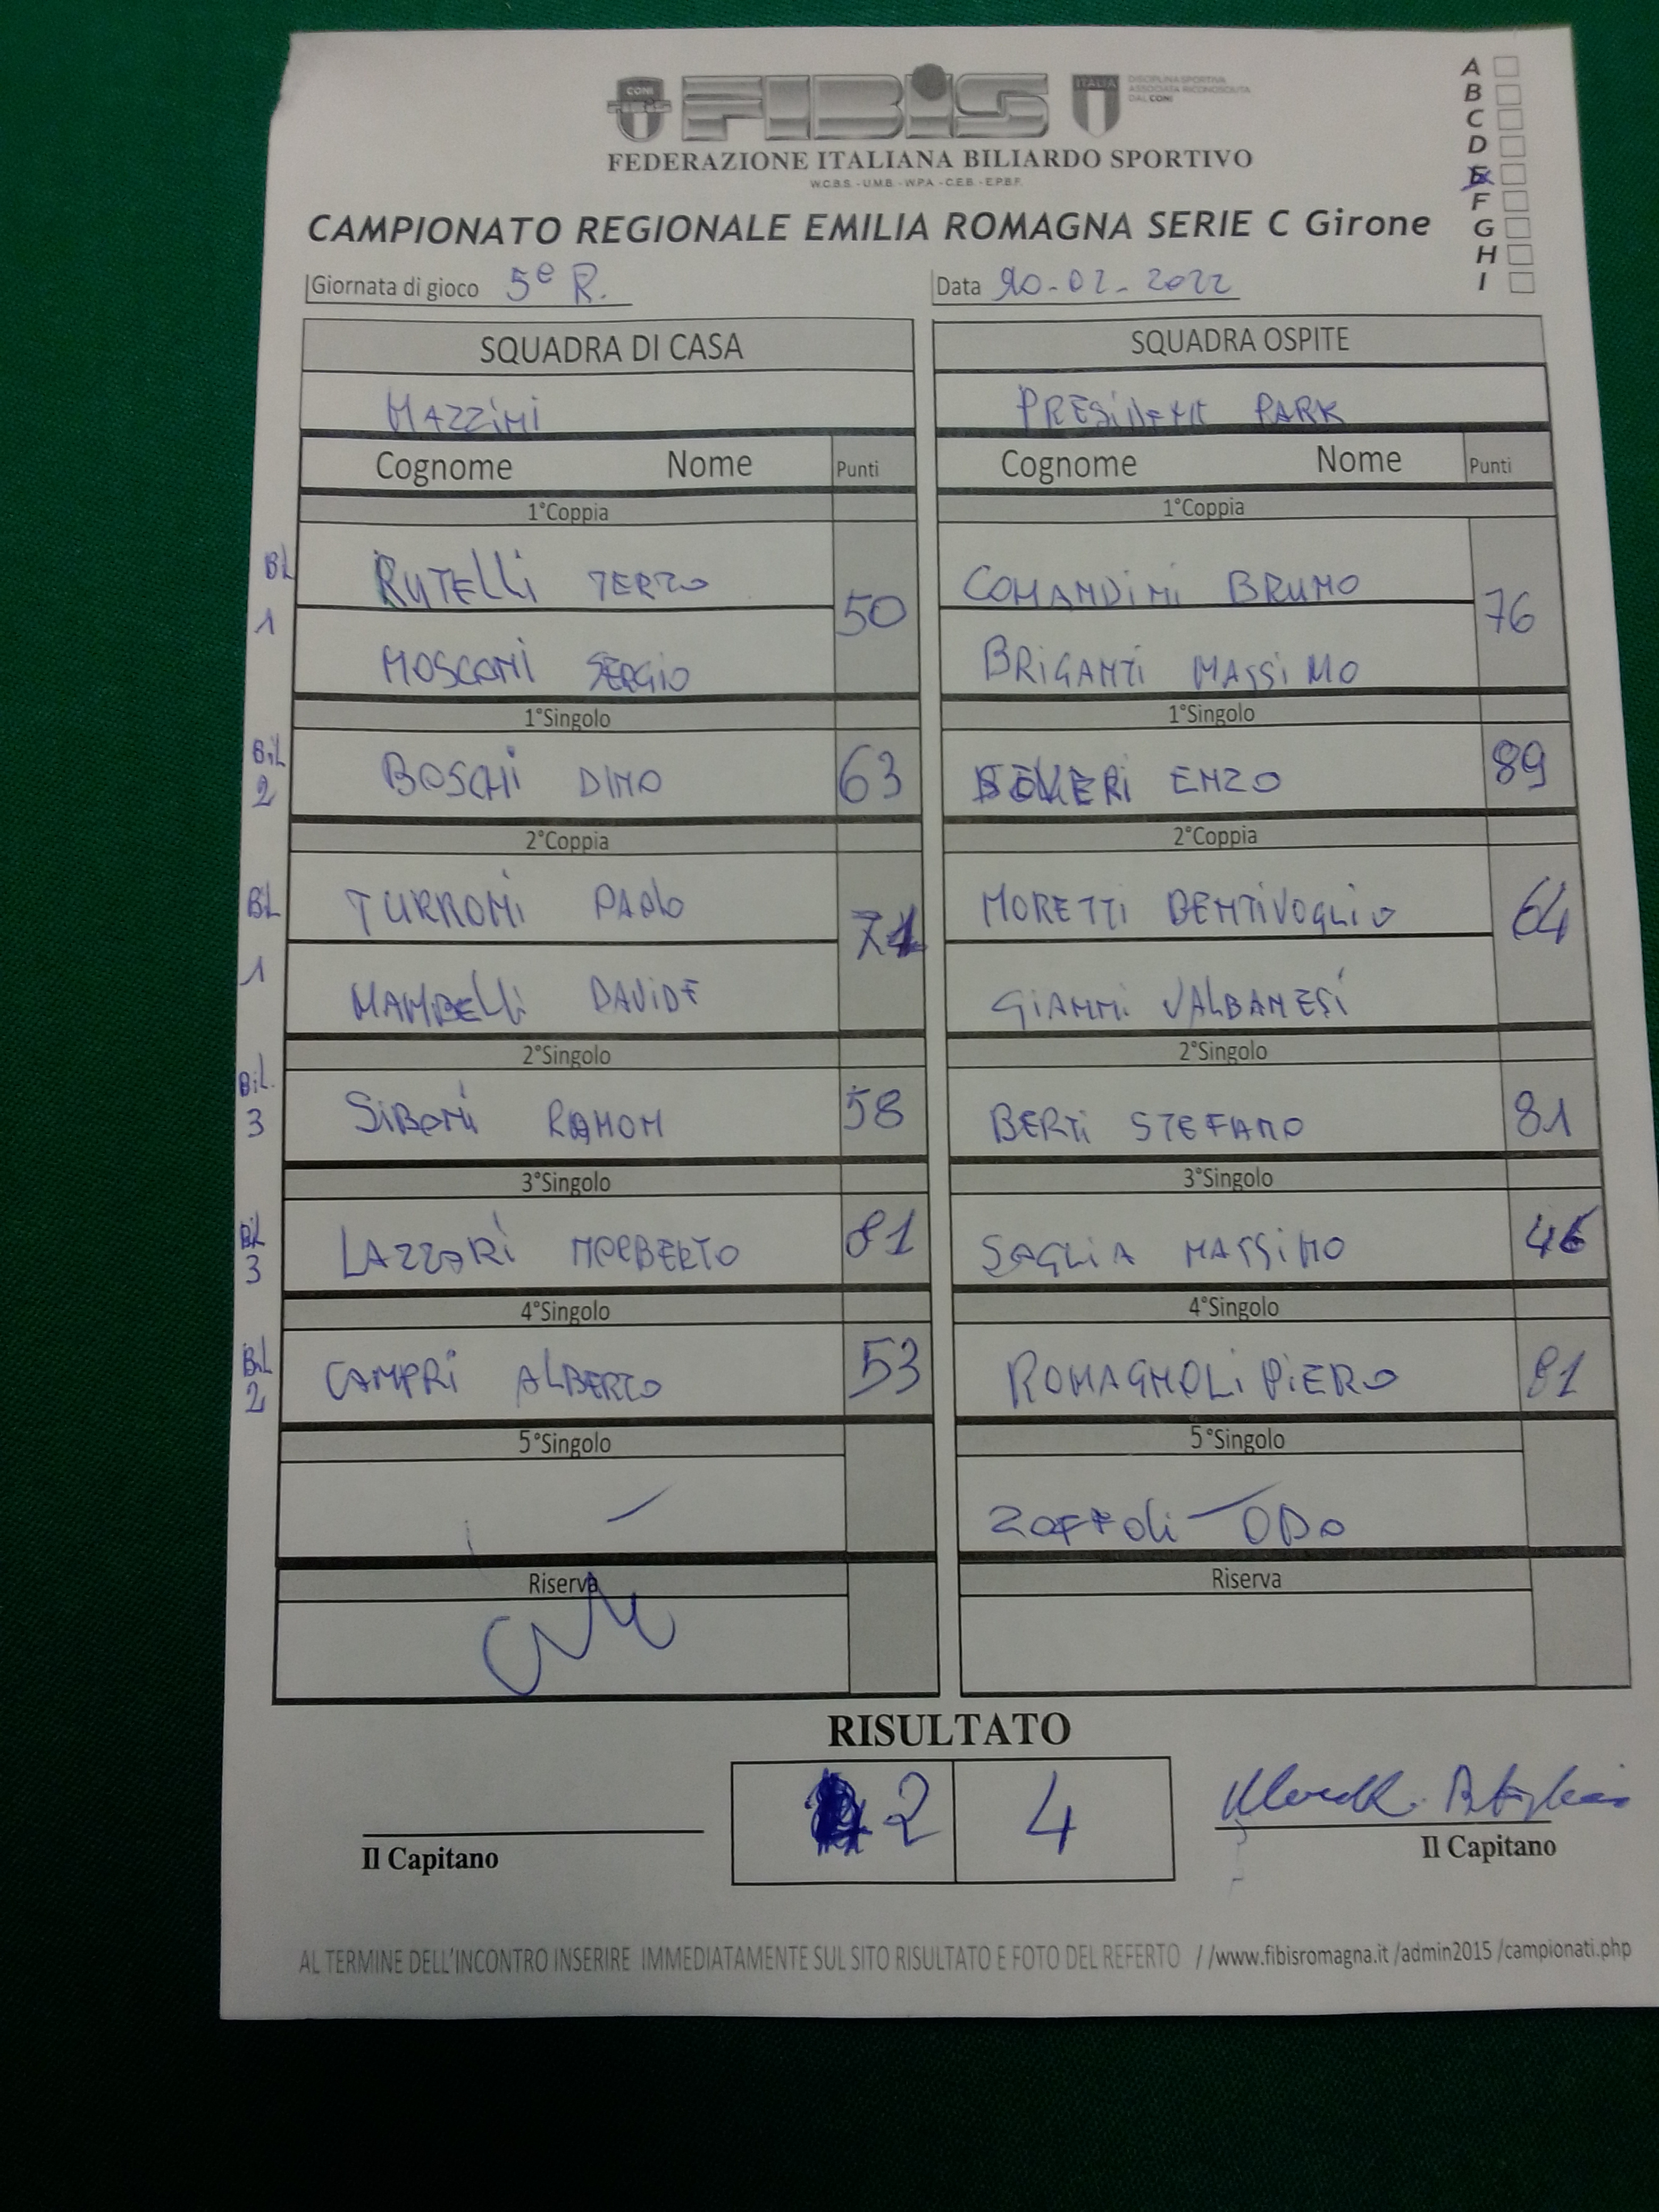 CONI
FIBiS
ITALIA
DISCIPLINA SPORTIVA
ASSOCIATA RICONOSCIUTA
DAL CONI
FEDERAZIONE ITALIANA BILIARDO SPORTIVO
W.C.B.S. - U.M.B. - W.P.A. - C.E.B. - E.P.B.F.
A
B
C
D
E
F
G
H
I
CAMPIONATO REGIONALE EMILIA ROMAGNA SERIE C Girone
Giornata di gioco 5e R. Data 10-02-2022
SQUADRA DI CASA SQUADRA OSPITE
MAZZiNi PRESiDENT PARK
Cognome Nome Punti Cognome Nome Punti
1°Coppia 1°Coppia
BiL 1 RUTELLi TERZO 50 COMANDiNi BRUNO 76
MOSCONi SERGiO BRiGANTi MASSiMO
1°Singolo 1°Singolo
BiL 2 BOSCHi DINO 63 ENZO 89
2°Coppia 2°Coppia
BiL 1 TURRONi PAOLO 71 MORETTi BENTiVOGLiO 64
MAMBELLi DAViDE GIANNi VALBANESi
2°Singolo 2°Singolo
BiL. 3 SiBONi RAMON 58 BERTi STEFANO 81
3°Singolo 3°Singolo
BiL 3 LAZZARi NORBERTO 81 SAGLiA MASSiMO 46
4°Singolo 4°Singolo
BiL 2 CAMPRi ALBERTO 53 ROMAGNOLi PiERO 81
5°Singolo 5°Singolo
ZOFFOLi ODO
Riserva Riserva
RISULTATO
2 4
Il Capitano Il Capitano
AL TERMINE DELL'INCONTRO INSERIRE IMMEDIATAMENTE SUL SITO RISULTATO E FOTO DEL REFERTO //www.fibisromagna.it /admin2015 /campionati.php